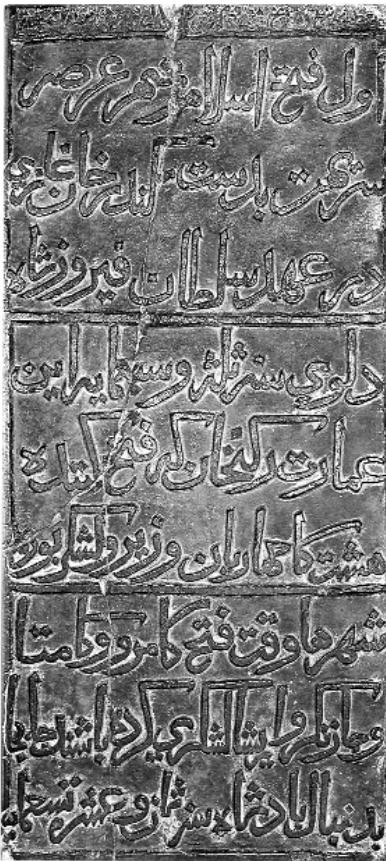 اول فتح اسلام شهر عرصه
سریهت بدست سکندر خان غازی
در عهد سلطان فیروز شاه
دلوی سنه ثلثه و سبعمایه این
عمارت رکنخان که فتح کننده
هشت کامهاریان وزیر و لشکر بوده
شهرها وقت فتح کامرو و کامتا
و جازنکر و اریشا لشکری کرده باشند جابجا
بدنبال بادشاه سنه ثمان و عشر و تسعمایه